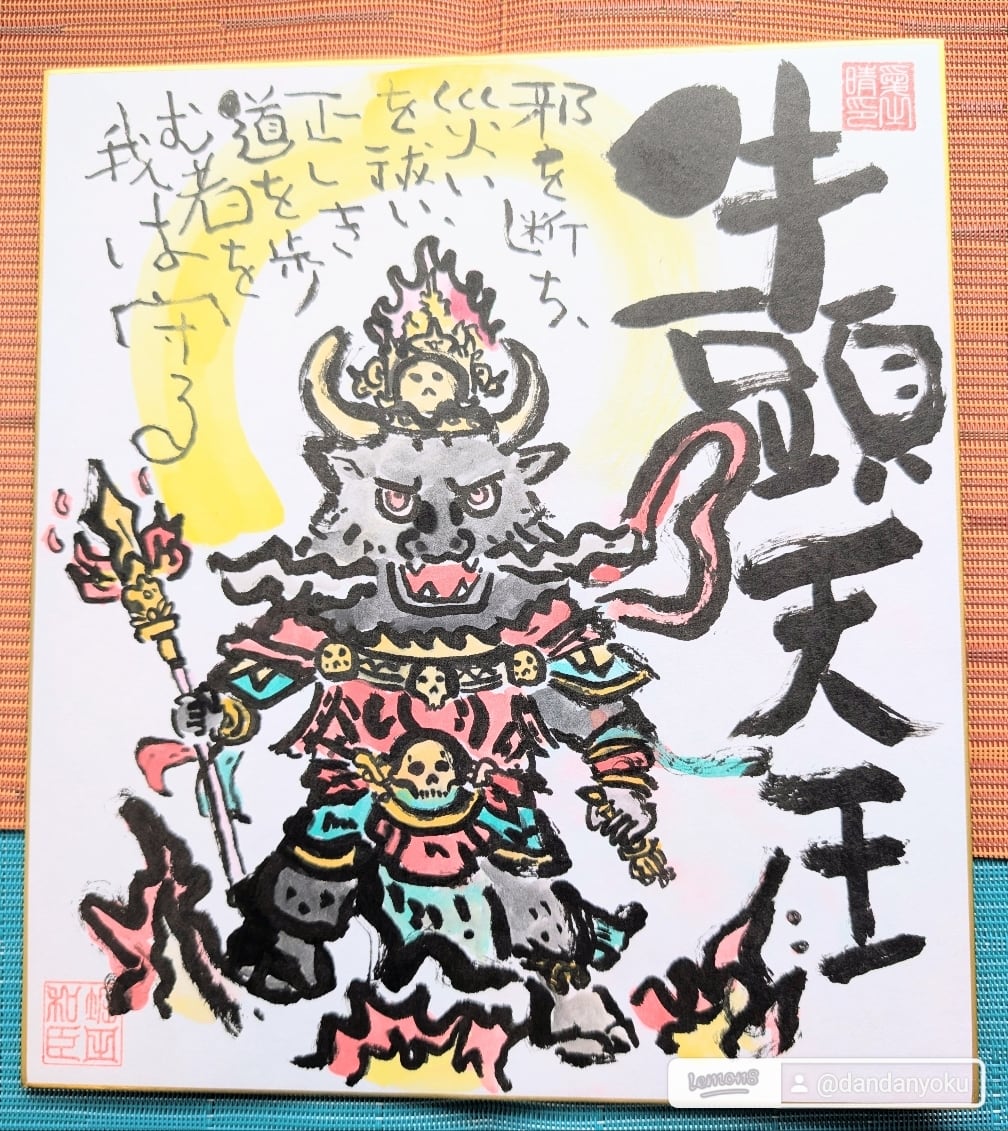 牛頭天王
邪を断ち、
災い、
を祓い、
正しき
道を歩
む者を
我は守る
lemon8
@dandanyoku